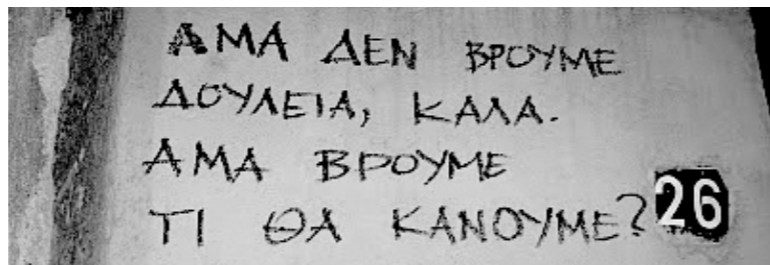 ΑΜΑ ΔΕΝ ΒΡΟΥΜΕ
ΔΟΥΛΕΙΑ, ΚΑΛΑ.
ΑΜΑ ΒΡΟΥΜΕ
ΤΙ ΘΑ ΚΑΝΟΥΜΕ? 26